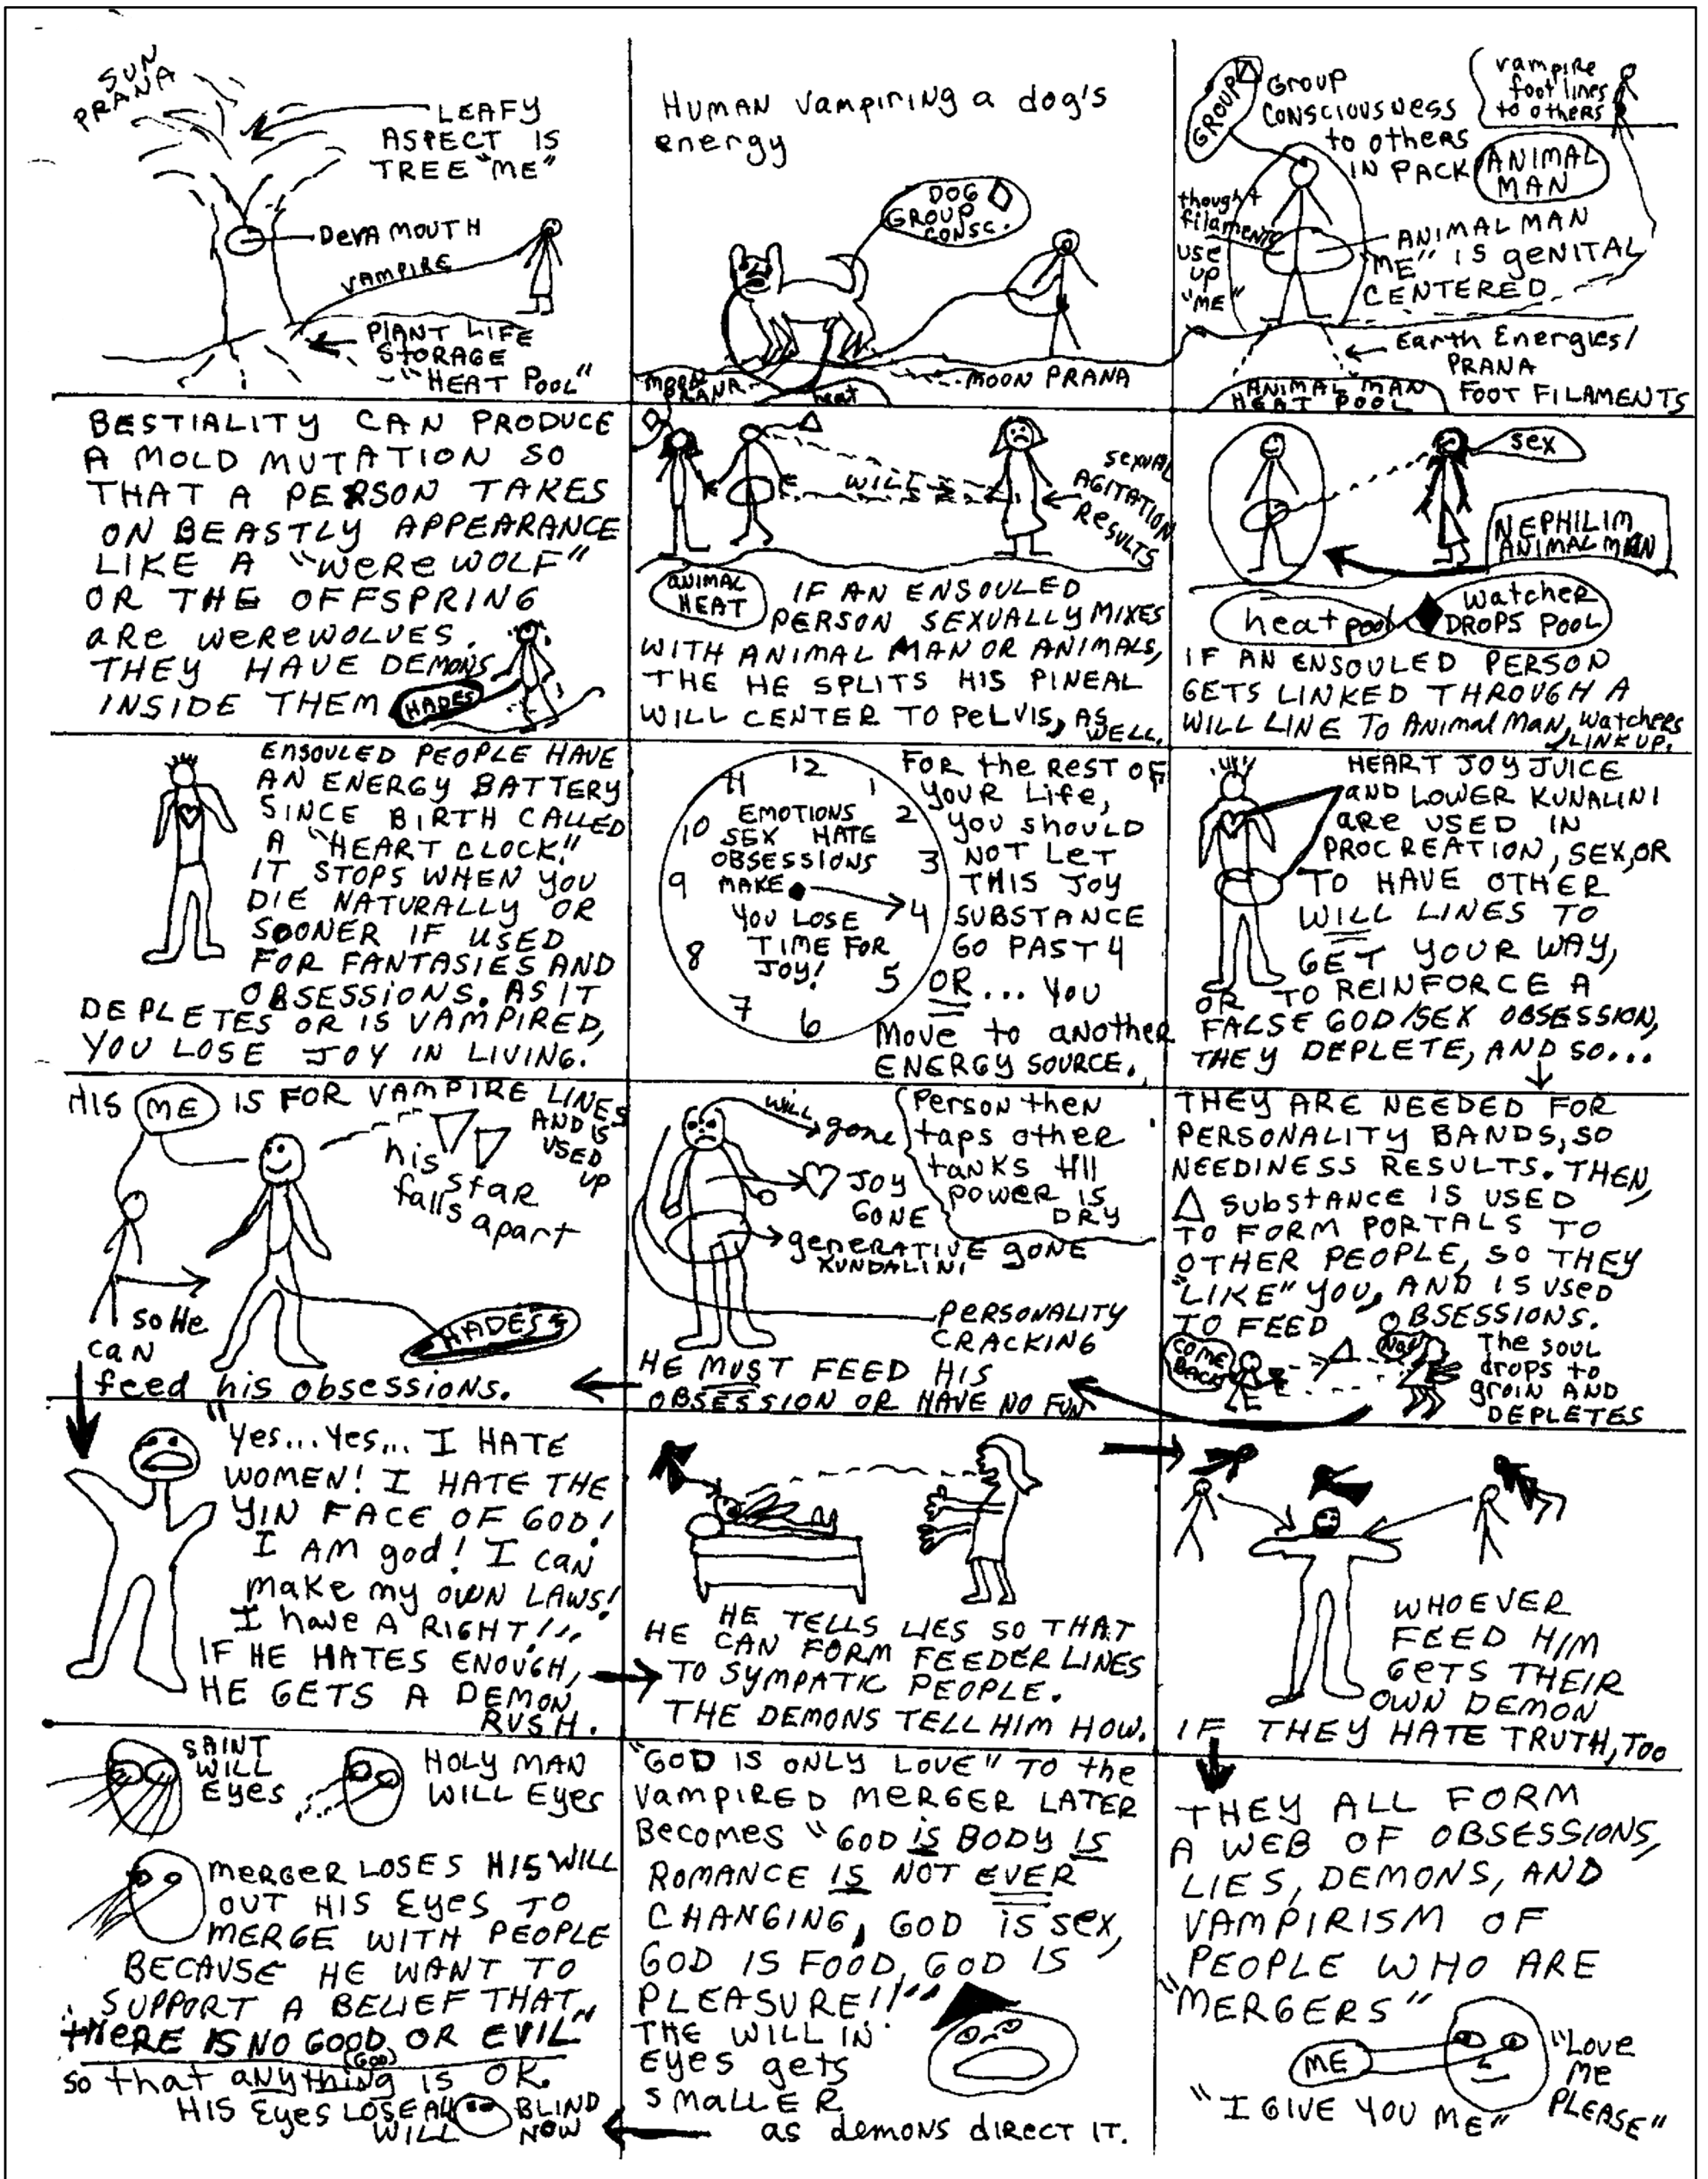 SUN
PRANA
LEAFY
ASPECT IS
TREE "ME"
DEVA MOUTH
VAMPIRE
PLANT LIFE
STORAGE
"HEAT POOL"
HUMAN vampiring a dog's
energy
DOG
GROUP
CONSC.
MOON
PRANA
heat
MOON PRANA
GROUP
GROUP
CONSCIOUSNESS
to others
IN PACK
vampire
foot lines
to others
ANIMAL
MAN
thought
filaments
USE
UP
"ME"
ANIMAL MAN
"ME" IS GENITAL
CENTERED
Earth Energies/
PRANA
FOOT FILAMENTS
ANIMAL MAN
HEAT POOL
BESTIALITY CAN PRODUCE
A MOLD MUTATION SO
THAT A PERSON TAKES
ON BEASTLY APPEARANCE
LIKE A "WERE WOLF"
OR THE OFFSPRING
ARE WEREWOLVES.
THEY HAVE DEMONS
INSIDE THEM
HADES
WILL
SEXUAL
AGITATION
RESULTS
ANIMAL
HEAT
IF AN ENSOULED
PERSON SEXUALLY MIXES
WITH ANIMAL MAN OR ANIMALS,
THE HE SPLITS HIS PINEAL
WILL CENTER TO PELVIS, AS
WELL.
sex
NEPHILIM
ANIMAL MAN
heat pool
watcher
DROPS POOL
IF AN ENSOULED PERSON
GETS LINKED THROUGH A
WILL LINE TO ANIMAL MAN, WATCHERS
LINK UP.
ENSOULED PEOPLE HAVE
AN ENERGY BATTERY
SINCE BIRTH CALLED
A "HEART CLOCK!"
IT STOPS WHEN YOU
DIE NATURALLY OR
SOONER IF USED
FOR FANTASIES AND
OBSESSIONS. AS IT
DEPLETES OR IS VAMPIRED,
YOU LOSE JOY IN LIVING.
12
11
1
10
2
9
3
8
4
7
5
6
EMOTIONS
SEX HATE
OBSESSIONS
MAKE
YOU LOSE
TIME FOR
JOY!
FOR the REST OF
YOUR LIFE,
YOU SHOULD
NOT LET
THIS JOY
SUBSTANCE
GO PAST 4
OR... YOU
Move to another
ENERGY SOURCE.
HEART JOY JUICE
AND LOWER KUNALINI
ARE USED IN
PROCREATION, SEX, OR
TO HAVE OTHER
WILL LINES TO
GET YOUR WAY,
OR TO REINFORCE A
FALSE GOD/SEX OBSESSION,
THEY DEPLETE, AND SO...
HIS ME IS FOR VAMPIRE LINES
AND IS
USED
UP
his star
falls apart
so He
can
feed his obsessions.
HADES
WILL
gone
JOY
GONE
GENERATIVE GONE
KUNDALINI
Person then
taps other
tanks till
power is
DRY
PERSONALITY
CRACKING
HE MUST FEED HIS
OBSESSION OR HAVE NO FUN
THEY ARE NEEDED FOR
PERSONALITY BANDS, SO
NEEDINESS RESULTS. THEN,
△ SUBSTANCE IS USED
TO FORM PORTALS TO
OTHER PEOPLE, SO THEY
"LIKE" YOU, AND IS USED
TO FEED OBSESSIONS.
COME
BACK
NO!
The soul
drops to
groin AND
DEPLETES
"Yes...Yes... I HATE
WOMEN! I HATE THE
YIN FACE OF GOD!
I AM god! I can
make my own LAWS!
I have A RIGHT!"
IF HE HATES ENOUGH,
HE GETS A DEMON
RUSH.
HE TELLS LIES SO THAT
HE CAN FORM FEEDER LINES
TO SYMPATIC PEOPLE.
THE DEMONS TELL HIM HOW.
WHOEVER
FEED HIM
GETS THEIR
OWN DEMON
IF THEY HATE TRUTH, TOO
SAINT
WILL
Eyes
HOLY MAN
WILL Eyes
MERGER LOSES HIS WILL
OUT HIS EYES TO
MERGE WITH PEOPLE
BECAUSE HE WANT TO
SUPPORT A BELIEF THAT
"THERE IS NO GOOD OR EVIL"
(GOD)
so that anything is OK.
HIS Eyes LOSE All
WILL
BLIND
NOW
"GOD IS ONLY LOVE" TO the
VAMPIRED MERGER LATER
Becomes "GOD IS BODY IS
ROMANCE IS NOT EVER
CHANGING, GOD IS SEX,
GOD IS FOOD, GOD IS
PLEASURE!!"
THE WILL IN
Eyes gets
smaller
as demons direct IT.
THEY ALL FORM
A WEB OF OBSESSIONS,
LIES, DEMONS, AND
VAMPIRISM OF
PEOPLE WHO ARE
"MERGERS"
ME
"LOVE
ME
PLEASE"
"I GIVE YOU ME"